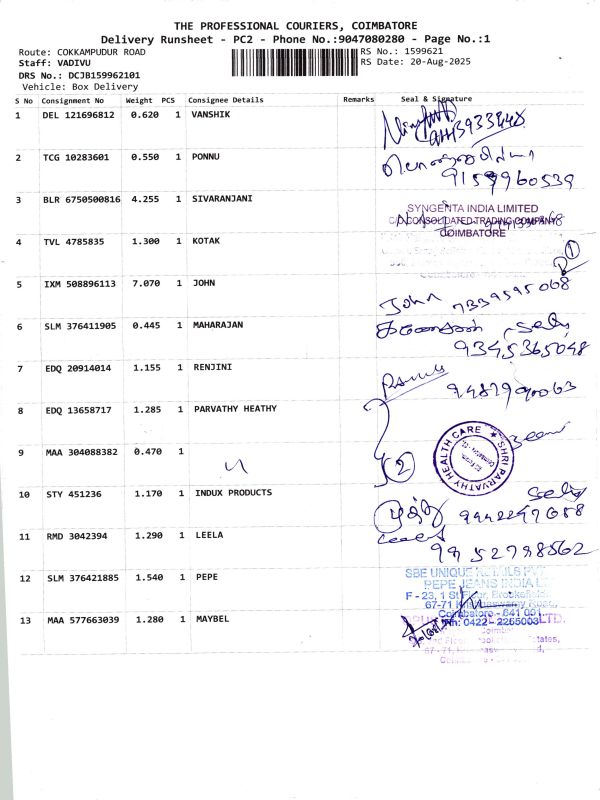 THE PROFESSIONAL COURIERS, COIMBATORE
Delivery Runsheet - PC2 - Phone No.:9047080280 - Page No.:1
Route: COKKAMPUDUR ROAD
RS No.: 1599621
Staff: VADIVU
RS Date: 20-Aug-2025
DRS No.: DCJB159962101
Vehicle: Box Delivery
S No Consignment No Weight PCS Consignee Details Remarks Seal & Signature
1 DEL 121696812 0.620 1 VANSHIK
2 TCG 10283601 0.550 1 PONNU
9159960539
3 BLR 6750500816 4.255 1 SIVARANJANI
SYNGENTA INDIA LIMITED
C/O CONSOLIDATED TRADING COMPANY
COIMBATORE
4 TVL 4785835 1.300 1 KOTAK
1
5 IXM 508896113 7.070 1 JOHN
John 7339595068
6 SLM 376411905 0.445 1 MAHARAJAN
9345365048
7 EDQ 20914014 1.155 1 RENJINI
8 EDQ 13658717 1.285 1 PARVATHY HEATHY
9 MAA 304088382 0.470 1
2
SHRI PARVATHY HEALTH CARE
10 STY 451236 1.170 1 INDUX PRODUCTS
11 RMD 3042394 1.290 1 LEELA
9952798562
12 SLM 376421885 1.540 1 PEPE
SBE UNIQUE
PEPE JEANS INDIA
F - 23, 1 St Floor, Brookefields
67-71
Coimbatore - 641 001.
Ph: 0422 - 2255003
LTD.
13 MAA 577663039 1.280 1 MAYBEL